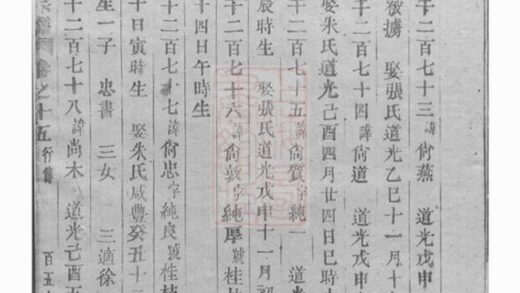 千二百七十三諱尙燕 道光戊申
被擄 娶張氏道光乙巳十一月十
千二百七十四諱尙道 道光戊申
娶朱氏道光己酉四月廿四日巳時
千二百七十五諱尙質字純一 道光
辰時生 娶張氏道光戊申十一月初
千二百七十六諱尙敦字純厚號桂
十四日午時生
千二百七十七諱尙忠字純良號桂枝
十日寅時生 娶朱氏咸豐癸丑十二
生一子 忠書 三女 三適徐
千二百七十八諱尙木 道光己酉五
卷之十五 行傳
百五十